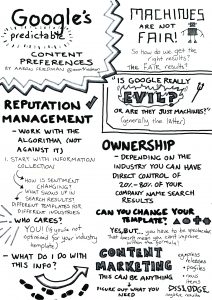 Google's
predictable
CONTENT
PREFERENCES
BY AARON FRIEDMAN
MACHINES
ARE NOT
FAIR!
So how do we get the
right results?
The FAIR results?
IS GOOGLE REALLY
EVIL?
OR ARE THEY JUST MACHINES?
(generally the latter)
REPUTATION
MANAGEMENT
- WORK WITH THE
ALGORITHM, (NOT
AGAINST IT)
1. START WITH INFORMATION
COLLECTION
HOW IS SENTIMENT
CHANGING?
WHAT SHOWS UP IN
SEARCH RESULTS?
DIFFERENT TEMPLATES FOR
DIFFERENT INDUSTRIES
WHO CARES?
YOU! (if you're not
optimised for your industry
template)
- WHAT DO I DO WITH
THIS INFO?
OWNERSHIP
- DEPENDING ON THE
INDUSTRY YOU CAN HAVE
DIRECT CONTROL OF
20% - 80% OF YOUR
COMPANY NAME SEARCH
RESULTS
CAN YOU CHANGE YOUR
TEMPLATE?
YES, BUT... you have to be
CONTENT
MARKETING
THIS CAN BE ANYTHING
FIGURE OUT WHAT YOU
NEED
press
releases
profiles
news
items
DISLODGE